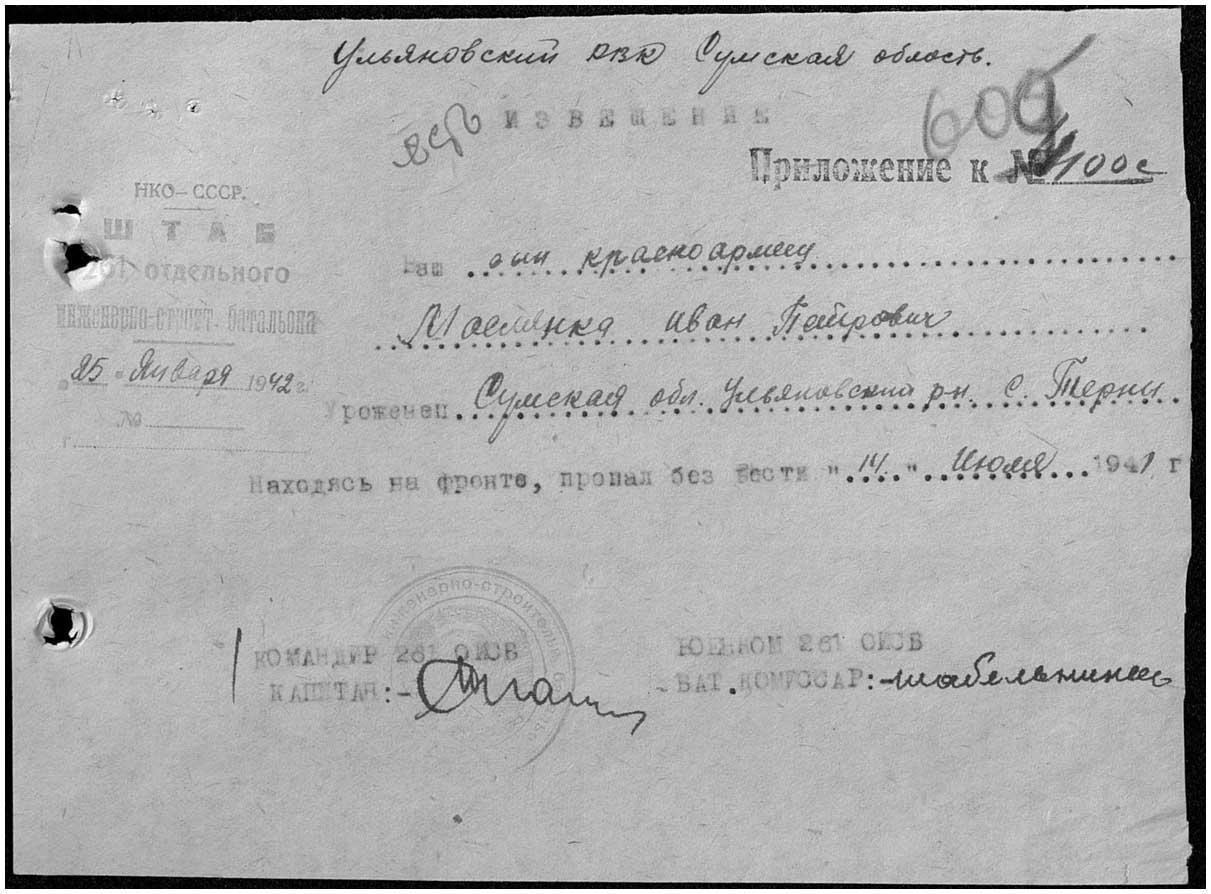 Ульяновский РВК Сумская область.
ИЗВЕЩЕНИЕ
609
Приложение к № 4100с
НКО–СССР.
ШТАБ
261 отдельного
инженерно-строит. батальона
"25" Января 1942 г.
№
г.
Ваш сын красноармеец
Маслянка Иван Петрович
Уроженец Сумская обл. Ульяновский рн. с. Терны
Находясь на фронте, пропал без вести "14" Июля 1941 г
инженерно-строитель
КОМАНДИР 261 ОИСБ
КАПИТАН:-
ВОЕНКОМ 261 ОИСБ
БАТ.КОМИССАР:-